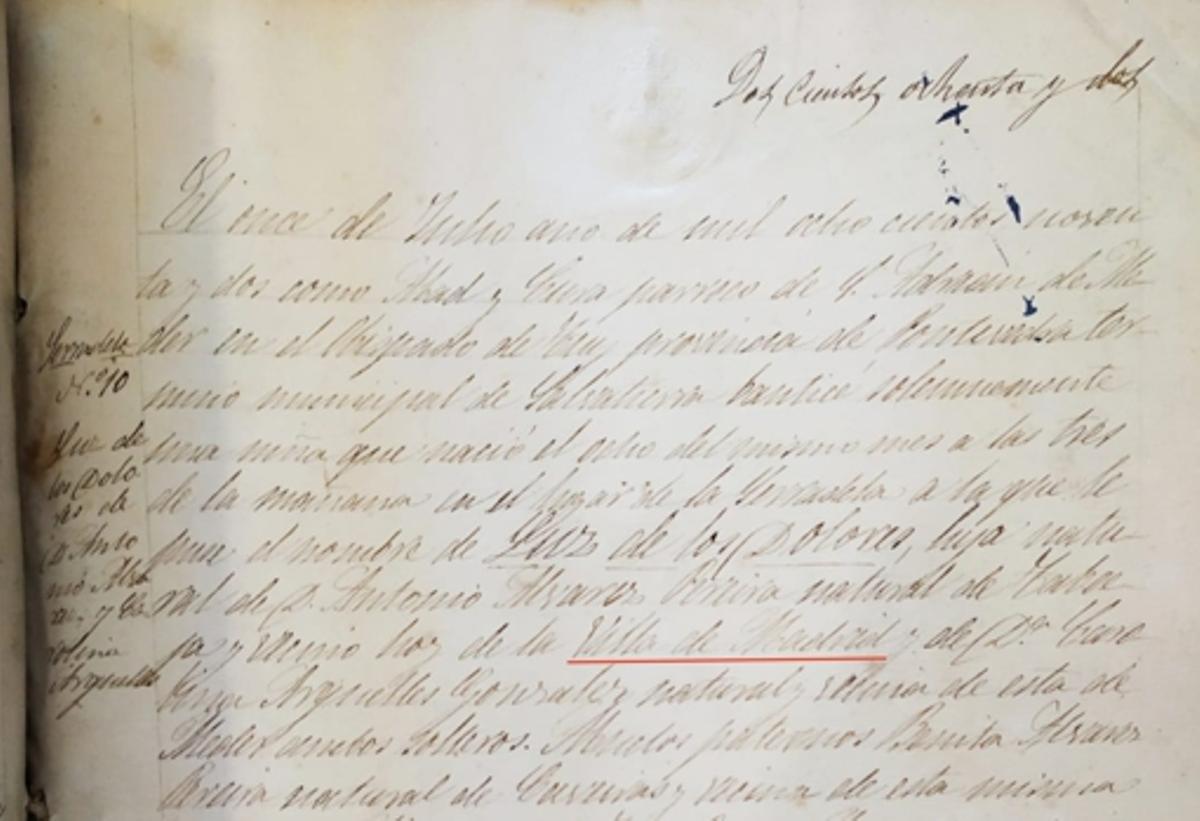 Dos Cientos ochenta y dos
El once de Julio ano de mil ocho cientos noven
ta y dos como Abad y Cura parroco de S. de Me
der en el Obispado de Tuy provincia de Pontevedra ter
mino municipal de Salvatierra bauticé solemnemente
una niña que nació el ocho del mismo mes a las tres
de la mañana en el lugar de la a la que le
puse el nombre de Luz de los Dolores, hija natu-
ral de D. Antonio Alvarez Pereira natural de
y vecino hoy de la Villa de Madrid y de Dª Caro
lina Arguelles Gonzalez natural y vecina de esta de
Meder ambos solteros. Abuelos paternos Benita Alvarez
Pereira natural de y vecina de esta misma
Nº 10
Luz de
los Dolo
res de
D. Anto
nio Alva
rez y Ca
rolina
Arguelles